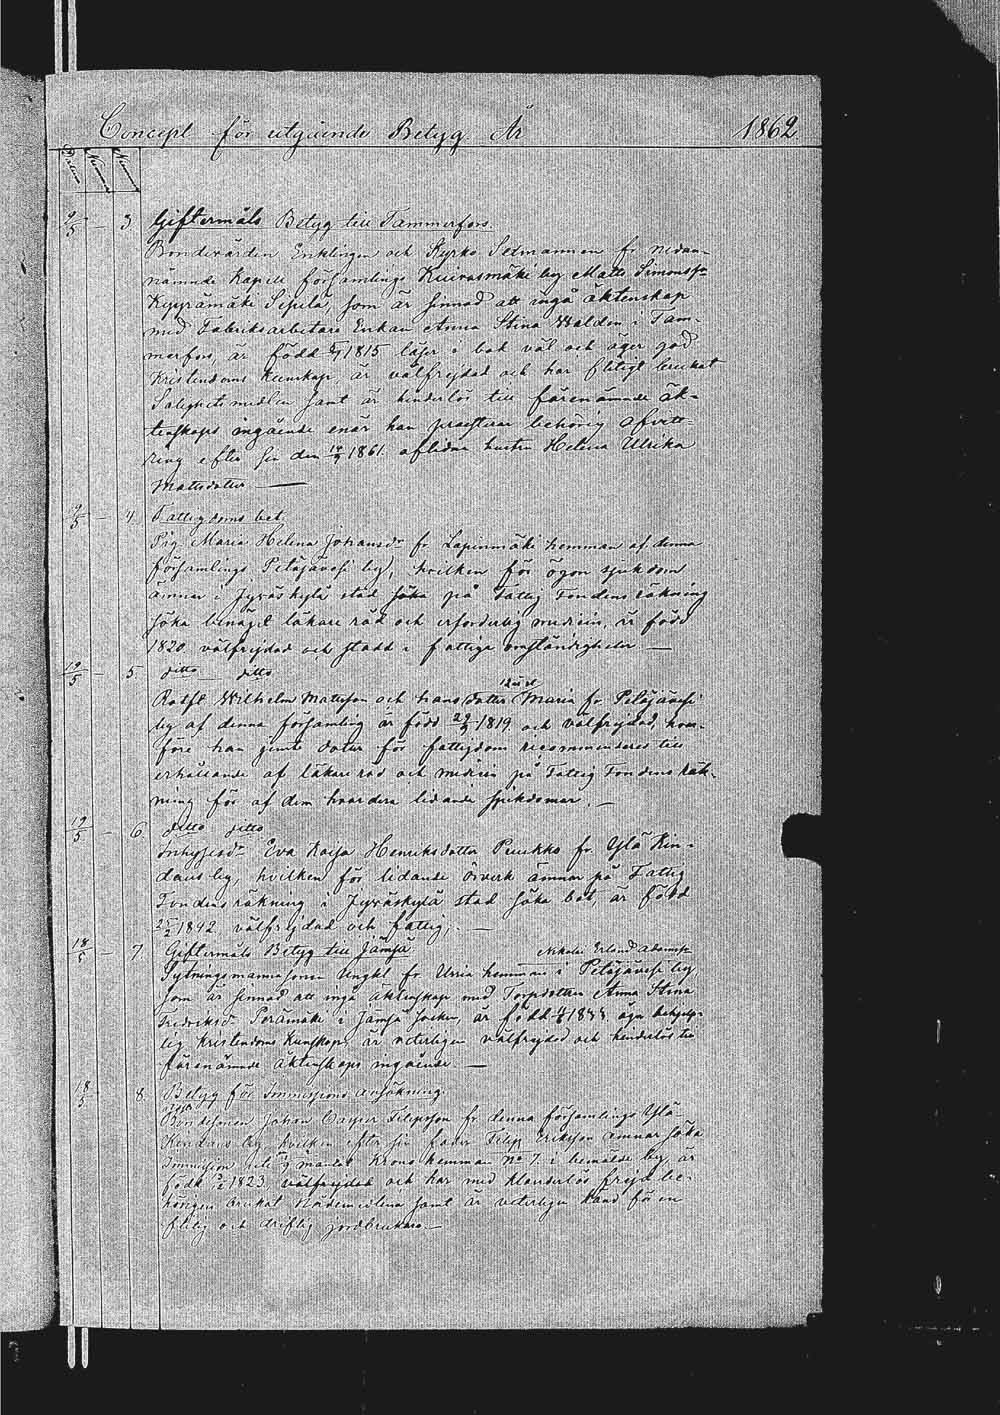 Concept för utgående Betyg År 1862
9/5 — 3 Giftermåls Betyg till Tammerfors.
Bondevärden Enklingen och Kyrko Sexmannen fr nedan-
nämnde Kapell församlings Kuivasmäki by Matts Simonsson
Kyyrämäki Seppälä, som är sinnad att ingå äktenskap
med Fabriksarbetare Enkan Anna Stina Waldén i Tam-
merfors, är född 1815 läser i bok väl och äger god
Kristendoms Kunskap, är välfrejdad och har flitigt brukat
Salighetsmedlen samt är hinderlös till förenämnde äk-
tenskaps ingående enär han praesterar behörig afvitt-
ring efter sin den 1861 aflidna hustru Helena Ulrika
Mattsdotter —
9/5 — 4 Fattigdoms bet.
Pig. Maria Helena Johansdr fr Lapinmäki hemman af denna
församlings Petäjävesi by, hvilken för ögon sjukdom
ämnar i Jyväskylä stad söka på Fattig Fondens räkning
söka benäget läkare råd och erforderlig medicin, är född
1820 välfrejdad och stadd i fattiga omständigheter —
12/5 — 5. ditto ditto
Wilhelm Mattsson och hans dotter Maria fr Petäjävesi
by af denna församling är född 29/9 1819 och välfrejdad, hvar-
före han jemte dotter för fattigdom recommenderas till
erhållande af läkare råd och medicin på Fattig Fondens räk-
ning för af dem hvardera lidande sjukdomar. —
12/5 — 6. ditto ditto
Inhysesdr Eva Kaisa Henriksdotter Puukko fr. Ylä Kin-
daus by, hvilken för lidande ämnar på Fattig
Fondens räkning i Jyväskylä stad söka bot, är född
1842 välfrejdad och fattig. —
18/5 — 7. Giftermåls Betyg till Jämsä
Nikolai Erland Adamsson
Sytningsmannasonen Ungkl fr Urria hemman i Petäjävesi by
som är sinnad att ingå äktenskap med Torpdottren Anna Stina
Fredriksdr Perämäki i Jämsä Socken, är född äger behjelp-
lig Kristendoms Kunskap, är veterligen välfrejdad och hinderlös till
förenämnde äktenskaps ingående. —
18/5 — 8. Betyg för Immissions ansökning.
Bondesonen Johan Casper Filipsson fr denna församlings Ylä
Kindaus by hvilken efter sin fader Filip Eriksson ämnar söka
Immission uti mantal Krono hemman No 7. i bemälde by är
född 1823 välfrejdad och har med klanderlös frejd be-
hörigen brukat samt är veterligen känd för en
flitig och driftig jordbrukare —